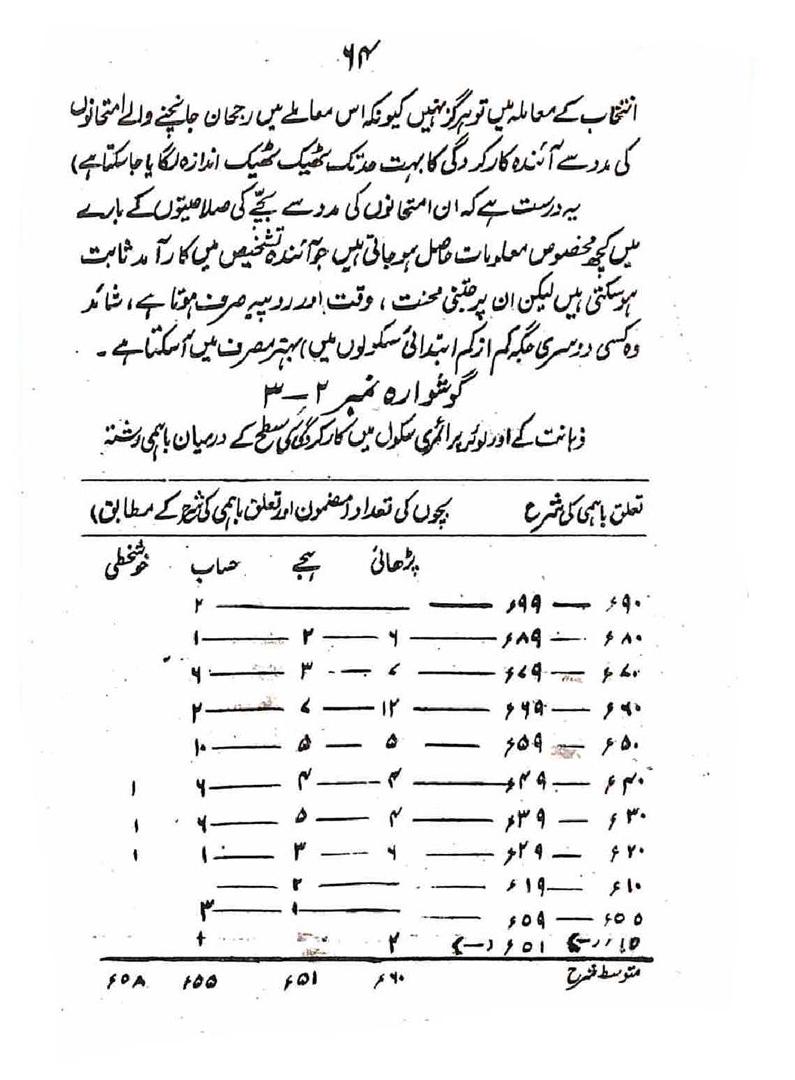 ۶۴
انتخاب کے معاملہ میں تو ہرگز نہیں کیونکہ اس معاملے میں رجحان جانچنے والے امتحانوں
کی مدد سے آئندہ کارکردگی کا بہت حد تک ٹھیک ٹھیک اندازہ لگایا جا سکتا ہے)
یہ درست ہے کہ ان امتحانوں کی مدد سے بچے کی صلاحیتوں کے بارے
میں کچھ مخصوص معلومات حاصل ہو جاتی ہیں جو آئندہ تشخیص میں کار آمد ثابت
ہو سکتی ہیں لیکن ان پر جتنی محنت ، وقت اور روپیہ صرف ہوتا ہے ، شائد
وہ کسی دوسری جگہ کم از کم ابتدائی سکولوں میں) بہتر مصرف میں آ سکتا ہے ۔
گوشوارہ نمبر ۲ – ۳
ذہانت کے اور لوئر پرائمری سکول میں کارکردگی کی سطح کے درمیان باہمی رشتہ
تعلق باہمی کی شرح بچوں کی تعداد (مضمون اور تعلق باہمی کی شرح کے مطابق)
پڑھائی ہجے حساب خوشخطی
۶۹۰ — ۶۹۹ — — ۲
۶۸۰ — ۶۸۹ — ۶ — ۲ — ۱
۶۷۰ — ۶۷۹ — ۷ — ۳ — ۶
۶۶۰ — ۶۶۹ — ۱۲ — ۷ — ۲
۶۵۰ — ۶۵۹ — ۵ — ۵ — ۱۰
۶۴۰ — ۶۴۹ — ۴ — ۴ — ۶ ۱
۶۳۰ — ۶۳۹ — ۴ — ۵ — ۶ ۱
۶۲۰ — ۶۲۹ — ۶ — ۳ — ۱ ۱
۶۱۰ — ۶۱۹ — — ۲ —
۶۵۵ — ۶۵۹ — — ۱ — ۳
۶۵۱ (–) ۲
متوسط شرح ۶۶۰ ۶۵۱ ۶۵۵ ۶۵۸